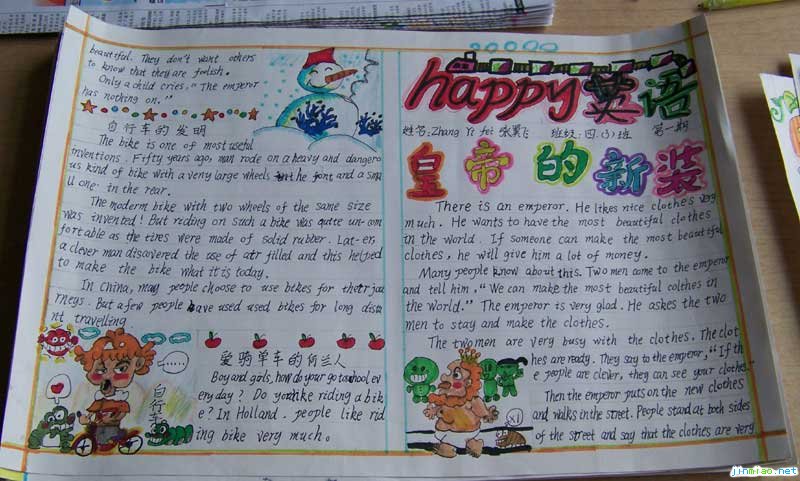 beautiful. They don't want others
to know that they are foolish.
Only a child cries, "The emperor
has nothing on."
自行车的发明
The bike is one of most useful
inventions. Fifty years ago, man rode on a heavy and dangero
us kind of bike with a very large wheels in the font and a sma
ll one in the rear.
The moderm bike with two wheels of the same size
was invented! But riding on such a bike was quite un-com
fortable as the tires were made of solid rubber. Lat-er,
a clever man discovered the use of air filled and this helped
to make the bike what it is today.
In China, many people choose to use bikes for their jou
rneys. But a few people have used used bikes for long dista
nt travelling
爱骑单车的荷兰人
Boy and girls, how do your go to school ev
eryday? Do you like riding a bik
e? In Holland. people like rid
ing bike very much.
自行车
happy 英语
姓名:Zhang Yi fei 张翼飞 班级:四.(3)班 第一期
皇帝的新装
There is an emperor. He likes nice clothes very
much. He wants to have the most beautiful clothes
in the world. If someone can make the most beautiful
clothes, he will give him a lot of money.
Many people know about this. Two men come to the emperor
and tell him, "We can make the most beautiful colthes in
the world." The emperor is very glad. He askes the two
men to stay and make the clothes.
The two men are very busy with the clothes. The clot
hes are ready. They say to the emperor, "If th
e people are clever, they can see your clothes."
Then the emperor puts on the new clothes
and walks in the street. People stand at both sides
of the street and say that the clothes are very
jinmiao.net